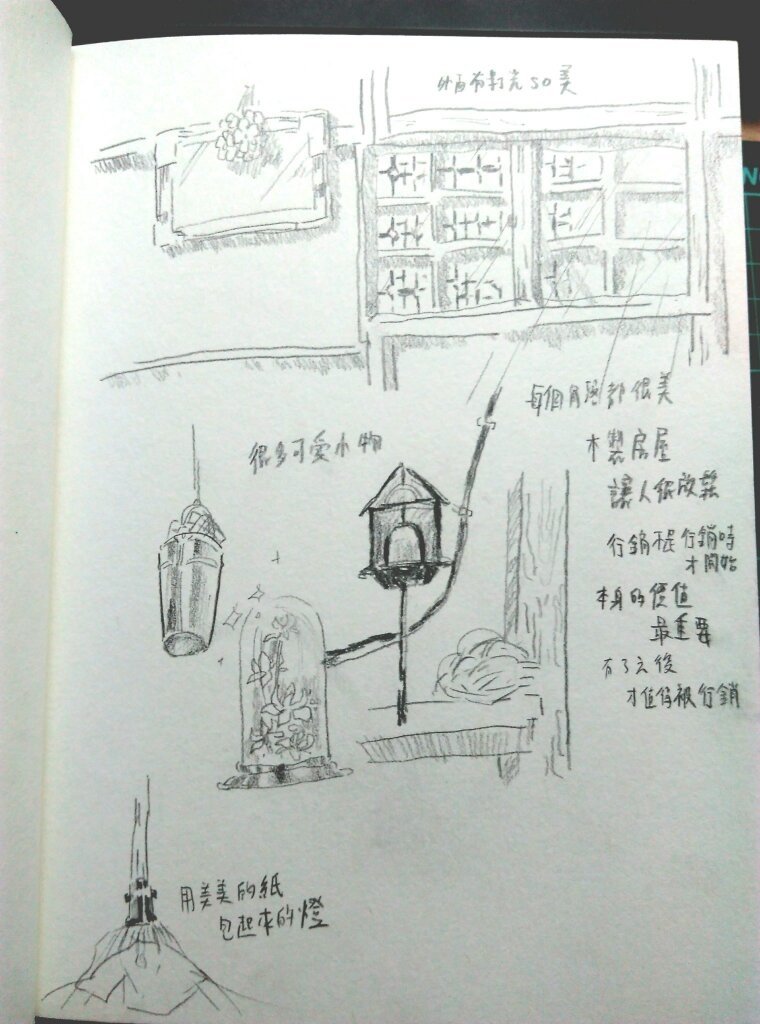 外面有打光 so 美
很多可愛小物
每個角落都很美
木製房屋
讓人很放鬆
行銷不是行銷時
才開始
本身的價值
最重要
有了之後
才值得被行銷
用美美的紙
包起來的燈